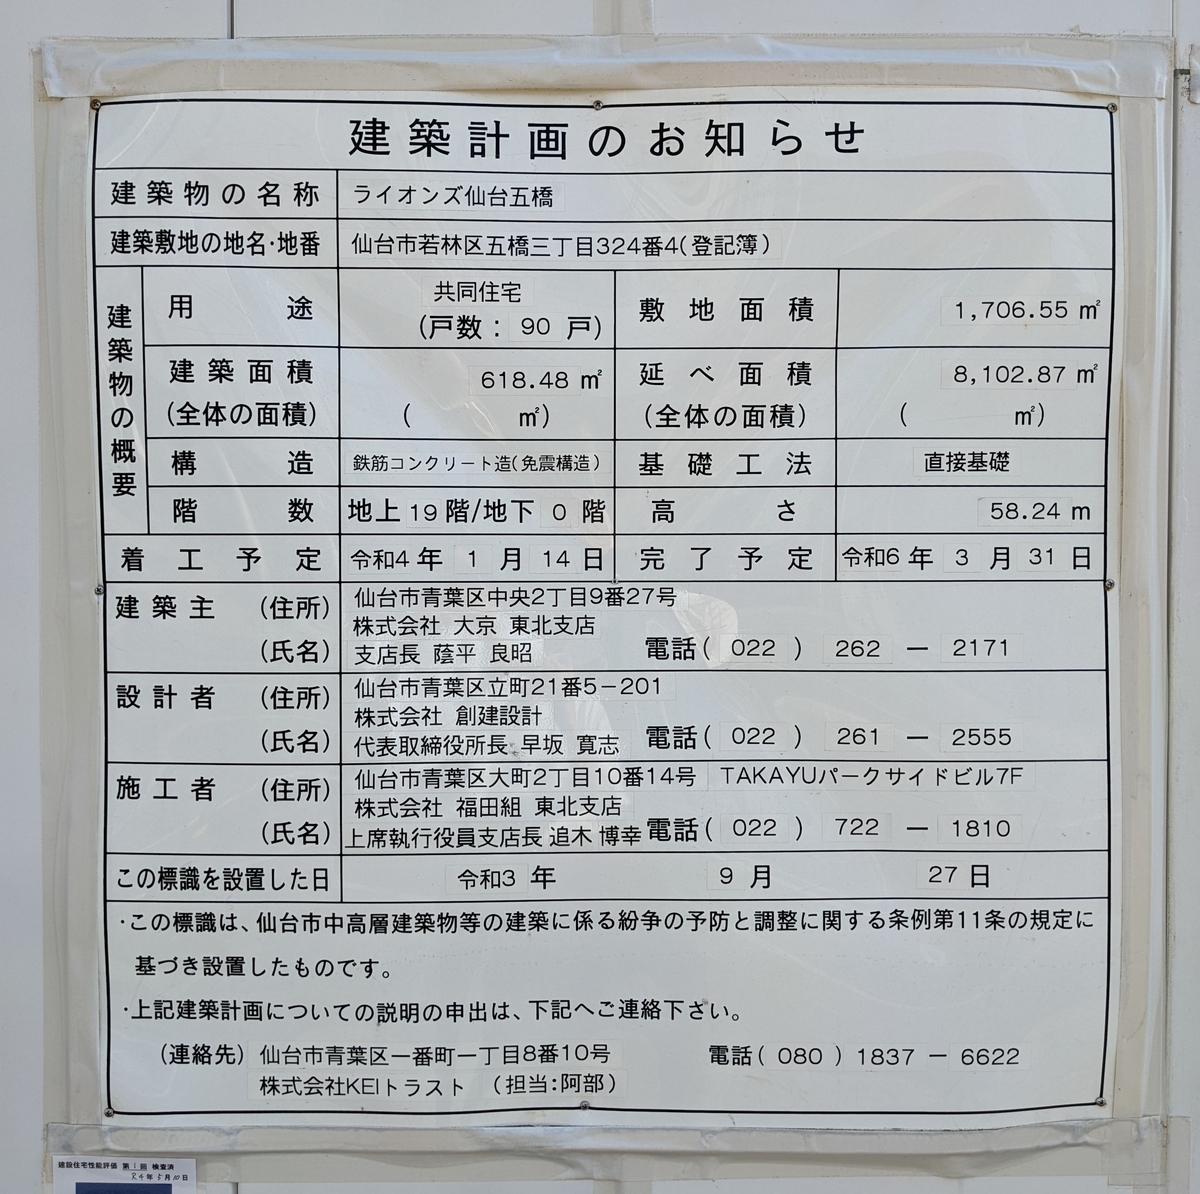 建築計画のお知らせ
建築物の名称 ライオンズ仙台五橋
建築敷地の地名・地番 仙台市若林区五橋三丁目324番4(登記簿)
建築物の概要
用途 共同住宅 (戸数: 90 戸) 敷地面積 1,706.55 ㎡
建築面積 618.48 ㎡ 延べ面積 8,102.87 ㎡
(全体の面積) ( ㎡) (全体の面積) ( ㎡)
構造 鉄筋コンクリート造(免震構造) 基礎工法 直接基礎
階数 地上 19 階/地下 0 階 高さ 58.24 m
着工予定 令和4 年 1 月 14 日 完了予定 令和6 年 3 月 31 日
建築主 (住所) 仙台市青葉区中央2丁目9番27号
株式会社 大京 東北支店
(氏名) 支店長 蔭平 良昭 電話( 022 ) 262 － 2171
設計者 (住所) 仙台市青葉区立町21番5－201
株式会社 創建設計
(氏名) 代表取締役所長 早坂 寛志 電話( 022 ) 261 － 2555
施工者 (住所) 仙台市青葉区大町2丁目10番14号 TAKAYUパークサイドビル7F
株式会社 福田組 東北支店
(氏名) 上席執行役員支店長 追木 博幸 電話( 022 ) 722 － 1810
この標識を設置した日 令和3 年 9 月 27 日
・この標識は、仙台市中高層建築物等の建築に係る紛争の予防と調整に関する条例第11条の規定に
基づき設置したものです。
・上記建築計画についての説明の申出は、下記へご連絡下さい。
(連絡先) 仙台市青葉区一番町一丁目8番10号 電話( 080 ) 1837 － 6622
株式会社KEIトラスト (担当:阿部)
建設住宅性能評価 第1回 検査済
R4年5月10日